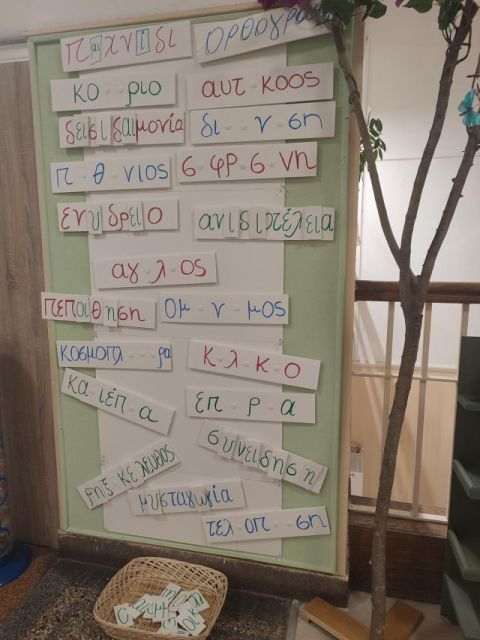 παιχνίδι ορθογρα
κο - ριο αυτ - κοος
δεισιδαιμονία δι - - ν - ση
π - θ - νιος σ - φρ - σ - νη
ενυδρείο ανιδιοτέλεια
αγ - λ - ος
πεποίθηση ομ - ν - μος
κοσμοπλ - - - ρα κ - λ - κ - ο
κα - ιέπ - α επ - ρ - α
συνείδηση
ρηξικέλευθος
μυσταγωγία
τελ - οπ - - ση